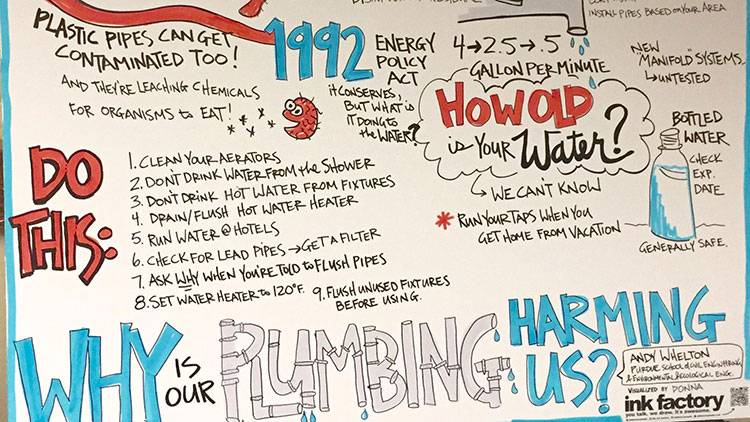 INSTALL PIPES BASED ON YOUR AREA
PLASTIC PIPES CAN GET
CONTAMINATED TOO!
AND THEY'RE LEACHING CHEMICALS
FOR ORGANISMS to EAT!
1992
ENERGY
POLICY
ACT
it CONSERVES,
BUT WHAT is
IT DOING to
the WATER?
4→2.5→.5
GALLON PER MINUTE
NEW
"MANIFOLD" SYSTEMS
↳UNTESTED
HOW OLD
is YOUR Water?
↳ WE CAN'T KNOW
* RUN YOUR TAPS WHEN YOU
GET HOME FROM VACATION
BOTTLED
WATER
CHECK
EXP.
DATE
GENERALLY SAFE.
DO
THIS:
1. CLEAN YOUR AERATORS
2. DON'T DRINK WATER FROM the SHOWER
3. DON'T DRINK HOT WATER FROM FIXTURES
4. DRAIN/FLUSH HOT WATER HEATER
5. RUN WATER @ HOTELS
6. CHECK FOR LEAD PIPES → GET A FILTER
7. ASK WHY WHEN YOU'RE TOLD to FLUSH PIPES
8. SET WATER HEATER to 120°F.
9. FLUSH UNUSED FIXTURES
BEFORE USING.
WHY IS OUR PLUMBING HARMING US?
ANDY WHELTON
PURDUE SCHOOL of CIVIL ENGINEERING
& ENVIRONMENTAL & ECOLOGICAL ENG.
VISUALIZED BY DONNA
ink factory
you talk. we draw. it's awesome.